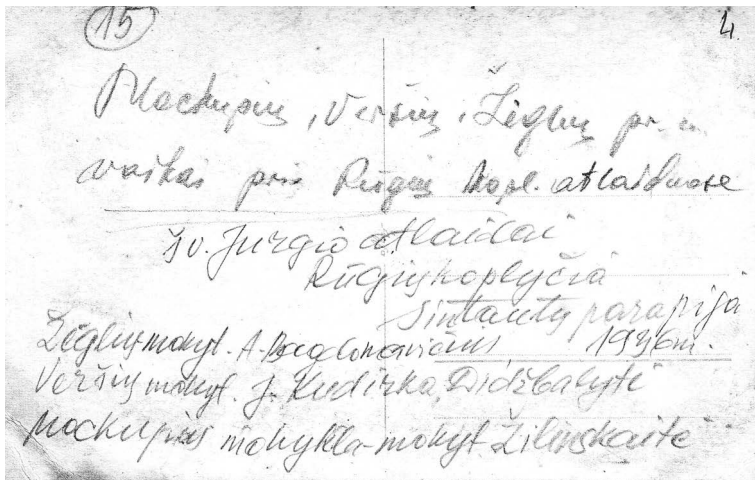 15
4.
Mockupių, Veršių, Žėglių pr. m.
vaikai prie Rūgių kopl. atlaiduose
Šv. Jurgio atlaidai
Rūgių koplyčia
Sintautų parapija
Žėglių mokyt. A. Bagdonavičius 1936 m.
Veršių mokyt. J. Kudirka, Didžbalytė
Mockupių mokykla - mokyt. Žilinskaitė